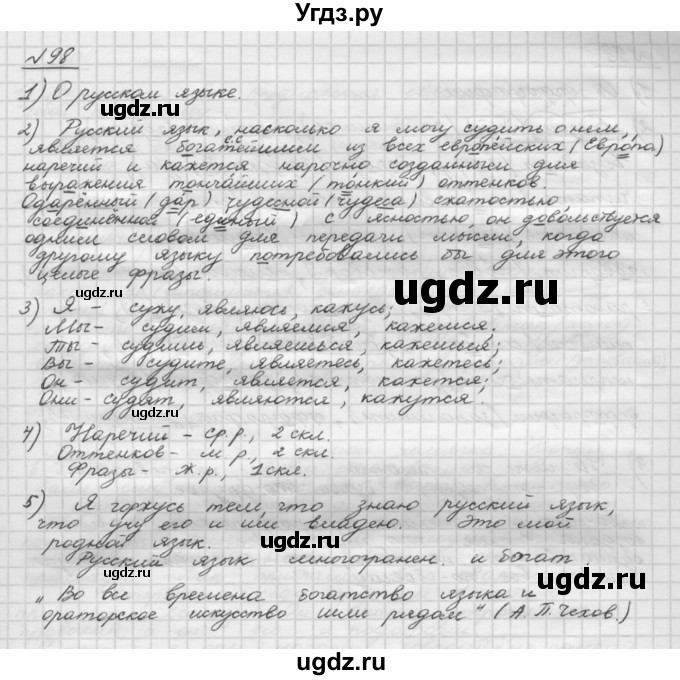 Угдз.ру
№98
1) О русском языке.
2) Русский язык, насколько я могу судить о нем,
является богатейшим из всех европейских (Европа)
наречий и кажется нарочно созданным для
выражения тончайших (тонкий) оттенков.
Одаренный (дар) чудесной (чудеса) сжатостью
соединённой (единый) с ясностью, он довольствуется
одним словом для передачи мысли, когда
другому языку потребовались бы для этого
целые фразы.
3) Я - сужу, являюсь, кажусь;
Мы - судим, являемся, кажемся;
Ты - судишь, являешься, кажешься;
Вы - судите, являетесь, кажетесь;
Он - судит, является, кажется;
Они - судят, являются, кажутся.
4) Наречий - ср.р., 2 скл.
Оттенков - м.р., 2 скл.
Фразы - ж.р., 1 скл.
5) Я горжусь тем, что знаю русский язык,
что учу его и им владею. Это мой
родной язык.
Русский язык многогранен и богат.
„Во все времена богатство языка и
ораторское искусство шли рядом" (А.П.Чехов.)
ugdz.ru
ugdz.ru
ugdz.ru
ugdz.ru
ugdz.ru
ugdz.ru
ugdz.ru
ugdz.ru
ugdz.ru